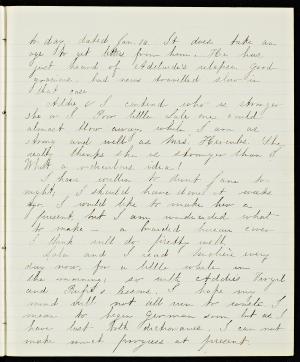 to day, dated Jan. 10. It does take an
age to get letters from home. He has
just heard of Adelaide's relapse. Good
gracious. bad news travelled slow in
that case
Addie & I contend who is stronger
she or I. Poor little Life one could
almost blow away, while I am as
strong and well as Mrs. Hercules. She
really thinks she is stronger than I
What a ridiculous idea!
I have written to Aunt Jane to
night. I should have done it weeks
ago. I would like to make her a
present, but I am undecided what
to make – a braided bureau cover
I think will do pretty well
Lola and I read Molière every
day now, for a little while in
the morning; so with Addie's Virgil
and Rufe's lessons. I hope my
mind will not all run to waste. I
mean to begin German soon but as I
have lost both dictionaries. I can not
make much progress at present.